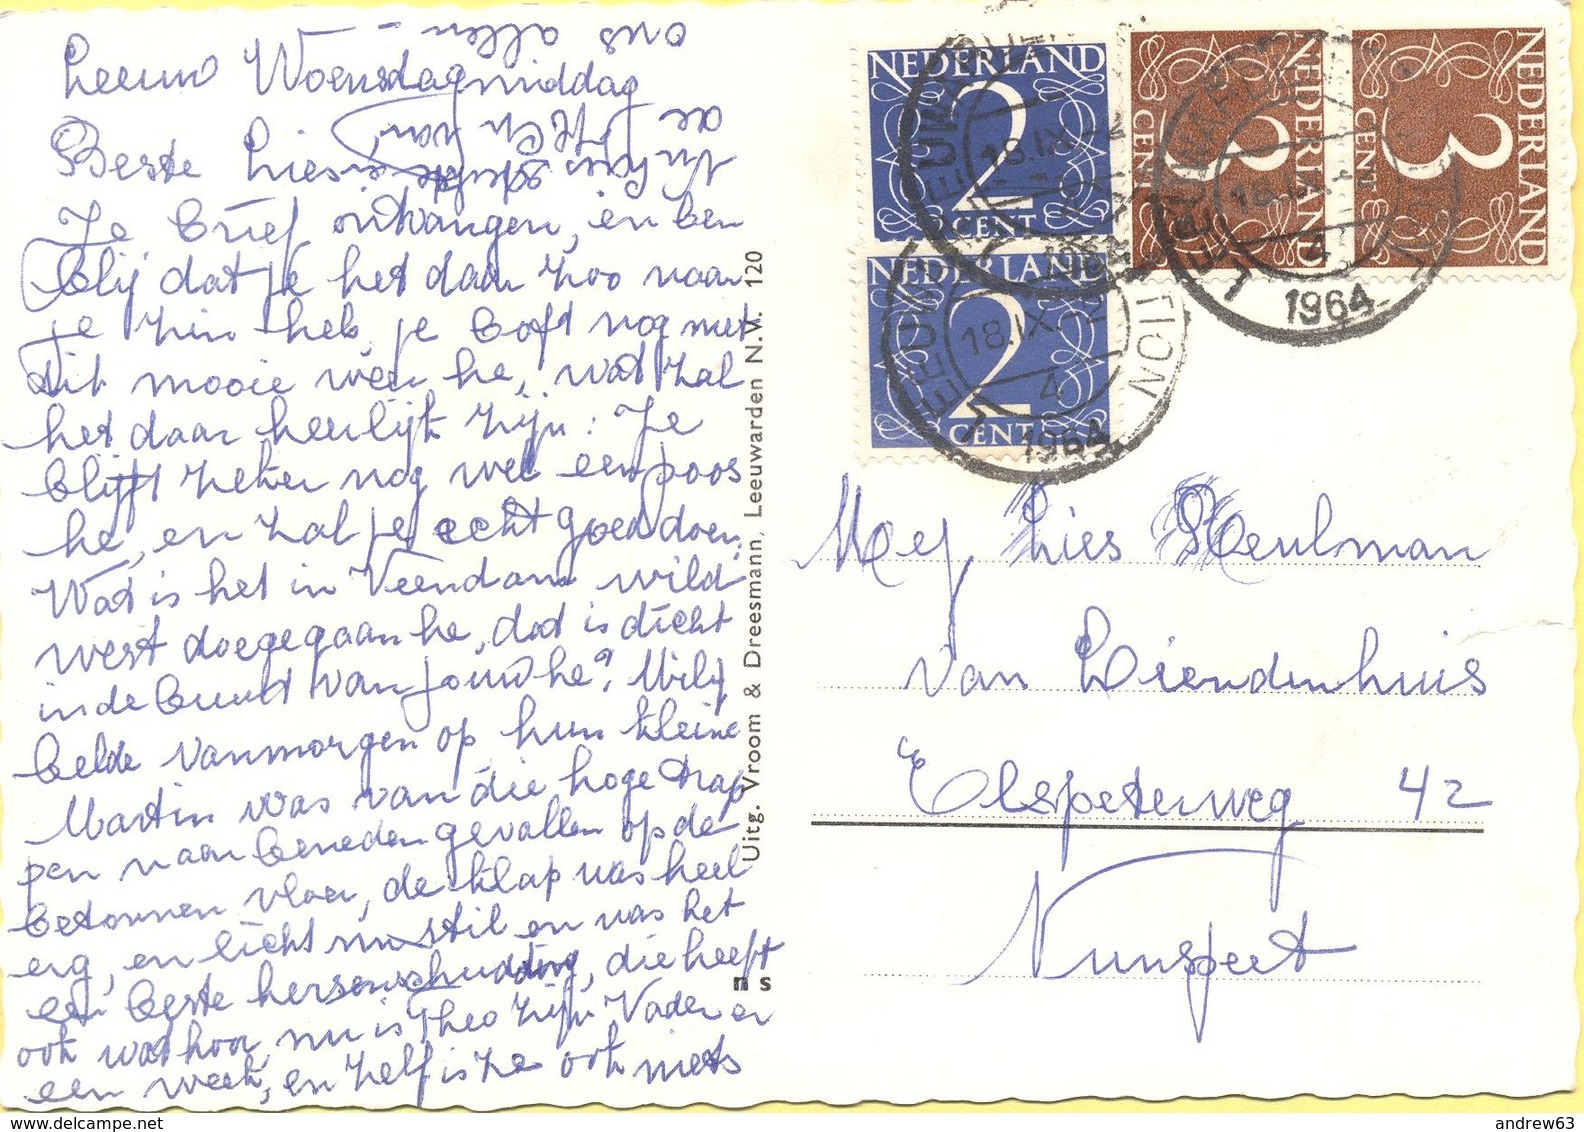 Leeuw Woensdagmiddag
Beste Lies
Je brief ontvangen, en ben
blij dat je het daar zoo naar
je zin heb, je boft nog met
dit mooie weer he, wat zal
het daar heerlijk zijn: Je
blijft zeker nog wel een poos
he, en zal je echt goed doen
Wat is het in Veendam wild
west toegegaan he, dat is dicht
in de buurt van jou he? Milij
belde vanmorgen op hun kleine
Martin was van die hoge trap
pen naar beneden gevallen op de
betonnen vloer, de klap was heel
erg, en licht nu stil en was het
een beste hersenschudding, die heeft
ook wat hoor, nu is Theo zijn Vader er
een week, en zelf is ze ook niets
de
van
ons allen
Uitg. Vroom & Dreesmann, Leeuwarden N.V. 120
n s
NEDERLAND
2
CENT
NEDERLAND
2
CENT
NEDERLAND
3
CENT
NEDERLAND
3
CENT
LEEUWARDEN
18.IX
4
1964
1964
1964
Mej Lies Meulman
van Liendenhuis
Elspeterweg 42
Nunspeet
andrew63